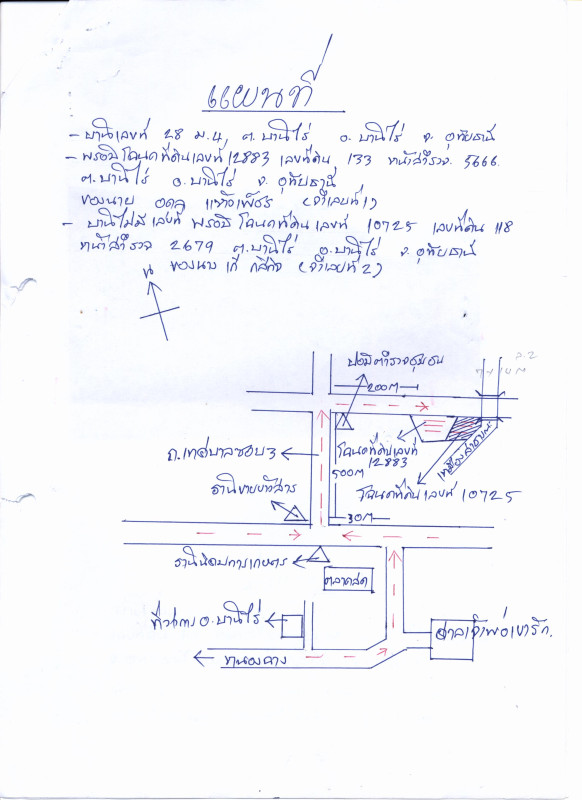 แผนที่
- บ้านเลขที่ 28 ม.4, ต.บ้านไร่ อ.บ้านไร่ จ.อุทัยธานี
- พร้อมโฉนดที่ดินเลขที่ 12883 เลขที่ดิน 133 หน้าสำรวจ 5666
ต.บ้านไร่ อ.บ้านไร่ จ.อุทัยธานี
ของนาย (จำเลยที่ 1)
- บ้านไม่มีเลขที่ พร้อมโฉนดที่ดินเลขที่ 10725 เลขที่ดิน 118
หน้าสำรวจ 2679 ต.บ้านไร่ อ.บ้านไร่ จ.อุทัยธานี
ของนาง (จำเลยที่ 2)
น
ป้อมตำรวจชุมชน
200 M
ถ.เทศบาลซอย 3
500 M
โฉนดที่ดินเลขที่
12883
โฉนดที่ดินเลขที่ 10725
30 M
ร้านขายข้าวสาร
ร้านนิคมการเกษตร
ตลาดสด
ที่ว่าการ อ.บ้านไร่
ศาลเจ้าพ่อเขารัก
หนองฉาง